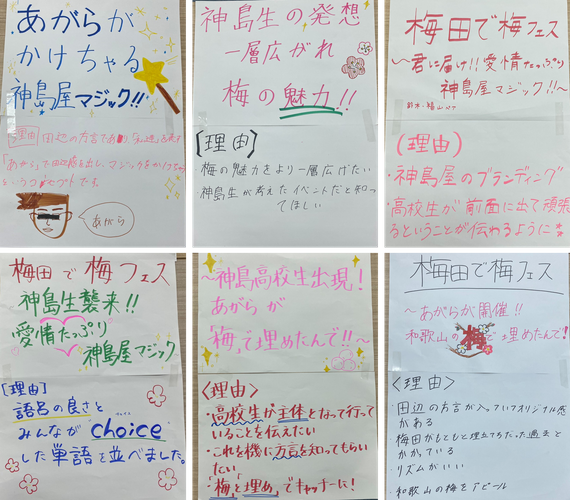 あがらが
かけちゃる
神島屋マジック!!
理由 田辺の方言であり、私達を表す
「あがら」で田辺感を出し、マジックをかけちゃる
というコンセプトです。
あがら
神島生の発想
一層広がれ
梅の魅力!!
【理由】
梅の魅力をより一層広げたい
神島生が考えたイベントだと知っ
てほしい
梅田で梅フェス
〜君に届け!!愛情たっぷり
神島屋マジック!!〜
(理由)
・神島屋のブランディング
・高校生が前面に出て頑張
るということが伝わるように
梅田で梅フェス
神島生襲来!!
愛情たっぷり
神島屋マジック
[理由]
語呂の良さと
みんながchoice
した単語を並べました。
〜神島高校生出現!
あがらが
「梅」で埋めたんで!!〜
〈理由〉
・高校生が主体となって行って
いることを伝えたい
・これを機に方言を知ってもらい
たい
・「梅」と「埋め」でキャッチーに!
梅田で梅フェス
〜あがらが開催!!
和歌山の梅で埋めたんで!
〈理由〉
・田辺の方言が入っていてオリジナル感
がある
・梅田がもともと埋立ちだった過去と
かかっている
・リズムがいい
・和歌山の梅をアピール